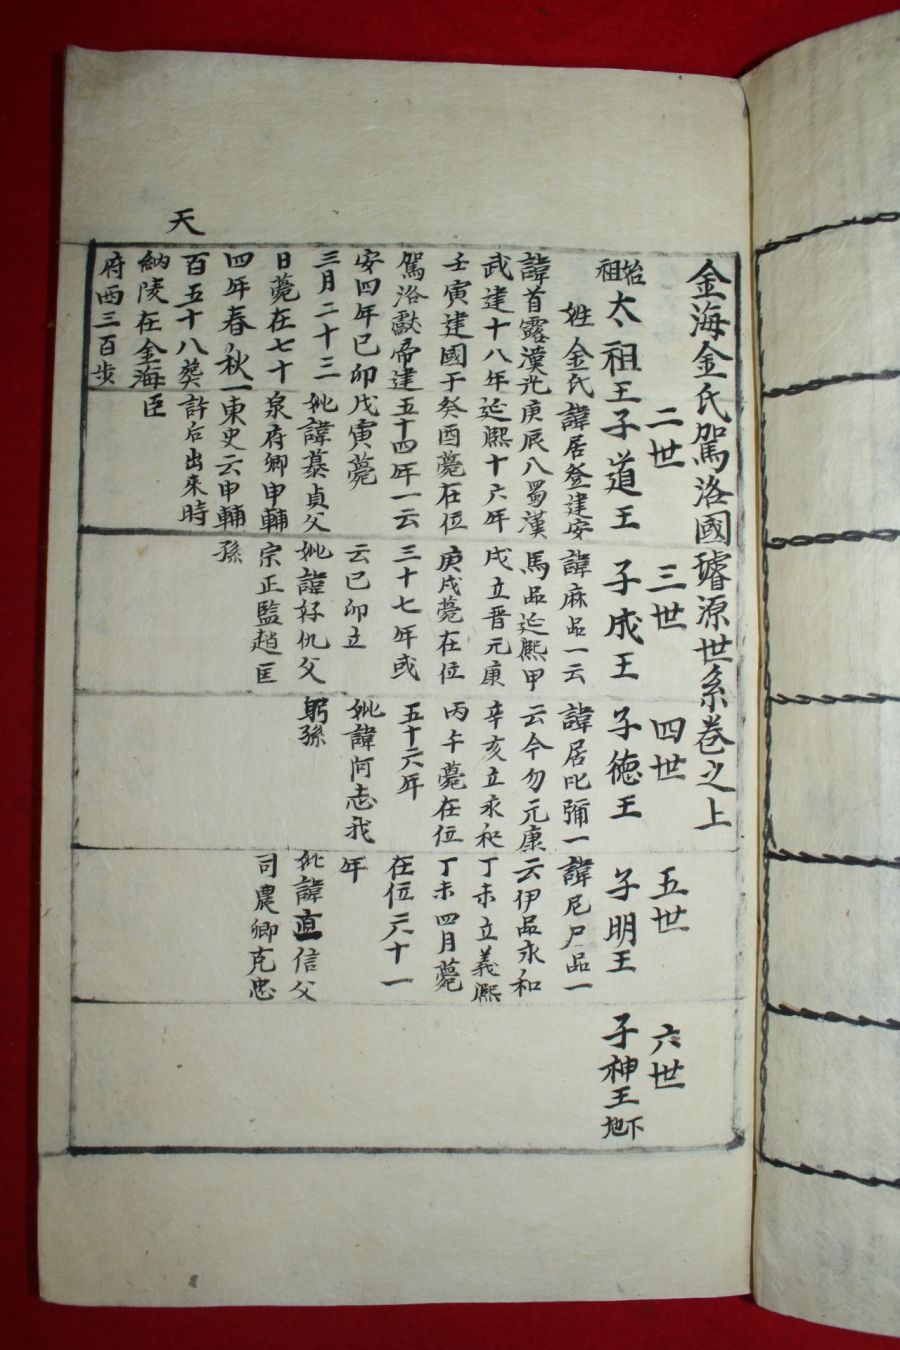 天
金海金氏駕洛國璿源世系卷之上
始祖太祖王
姓金氏
諱首露漢光
武建十八年
壬寅建國于
駕洛獻帝建
安四年己卯
三月二十三
日薨在七十
四年春秋一
百五十八葬
納陵在金海
府西三百步
二世
子道王
諱居登建安
庚辰八蜀漢
延熙十六年
癸酉薨在位
五十四年一云
戊寅薨
妣諱慕貞父
泉府卿申輔
東史云申輔
許后出來時
臣
三世
子成王
諱麻品一云
馬品延熙甲
戌立晋元康
庚戌薨在位
三十七年或
云己卯立
妣諱好仇父
宗正監趙匡
孫
四世
子德王
諱居叱彌一
云今勿元康
辛亥立永和
丙午薨在位
五十六年
妣諱阿志我
躬孫
五世
子明王
諱尼尸品一
云伊品永和
丁未立義熙
丁未四月薨
在位六十一
年
妣諱直信父
司農卿克忠
六世
子神王
下地